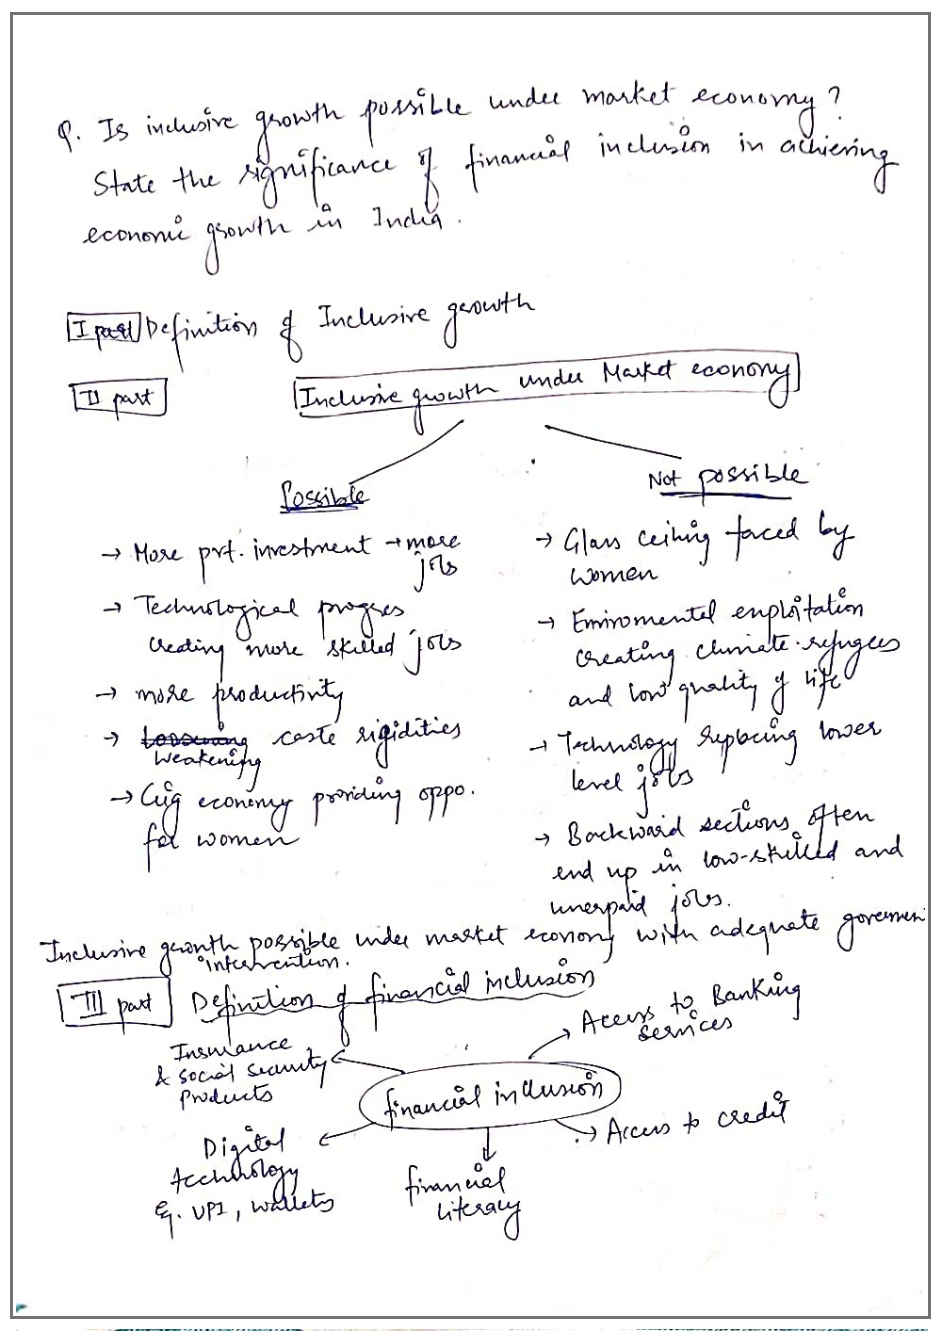 Q. Is inclusive growth possible under market economy?
State the significance of financial inclusion in achieving
economic growth in India.
I part Definition of Inclusive growth
II part
Inclusive growth under Market economy
Possible
→ More prt. investment → more
jobs
→ Technological progres
creating more skilled jobs
→ more productivity
→ Loosening caste rigidities
weakening
→ Gig economy providing oppo.
for women
Not possible
→ Glass ceiling faced by
women
→ Enviromental exploitation
creating climate-refugees
and low quality of life
→ Technology replacing lower
level jobs
→ Backward sections often
end up in low-skilled and
unerpaid jobs.
Inclusive growth possible under market economy with adequate governmen
intervention.
III part Definition of financial inclusion
financial inclusion
→ Access to Banking
services
→ Access to credit
financial
literacy
Digital
technology
Eg. UPI, wallets
Insurance
& social security
products